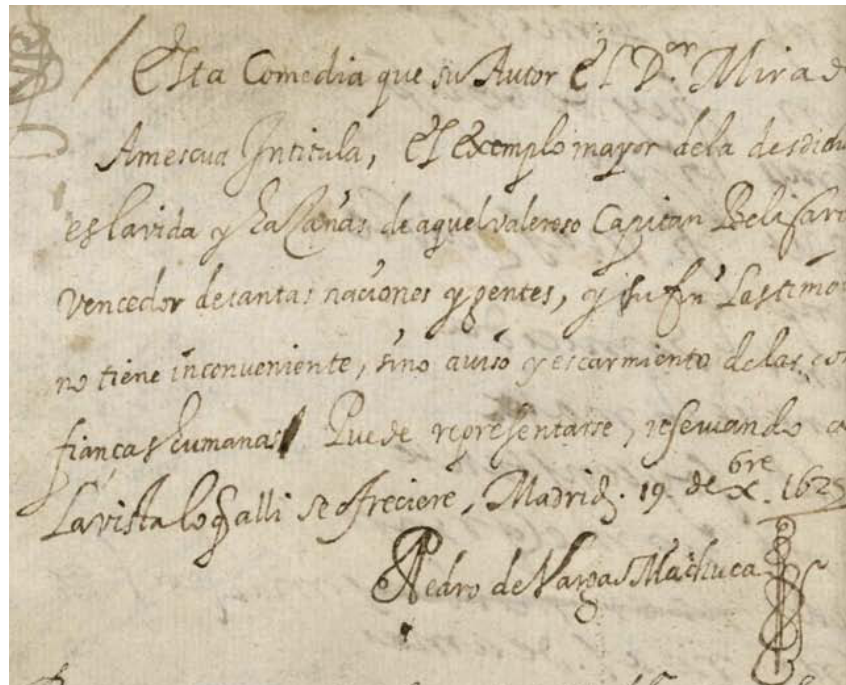 Esta Comedia que su Autor el D.or Mira de
Amescua Intitula, el exemplo mayor dela desdicha
es la vida y haçañas de aquel valeroso Capitan Belisario
Vencedor detantas naciones y gentes, y su fin Lastimo
no tiene inconueniente, sino auiso y escarmiento delas con
fianças humanas Puede representarse, reseruando a
La vista lo q̃ alli se ofreciere, Madrid. 19 de xbre. 1625
Pedro de Vargas Machuca